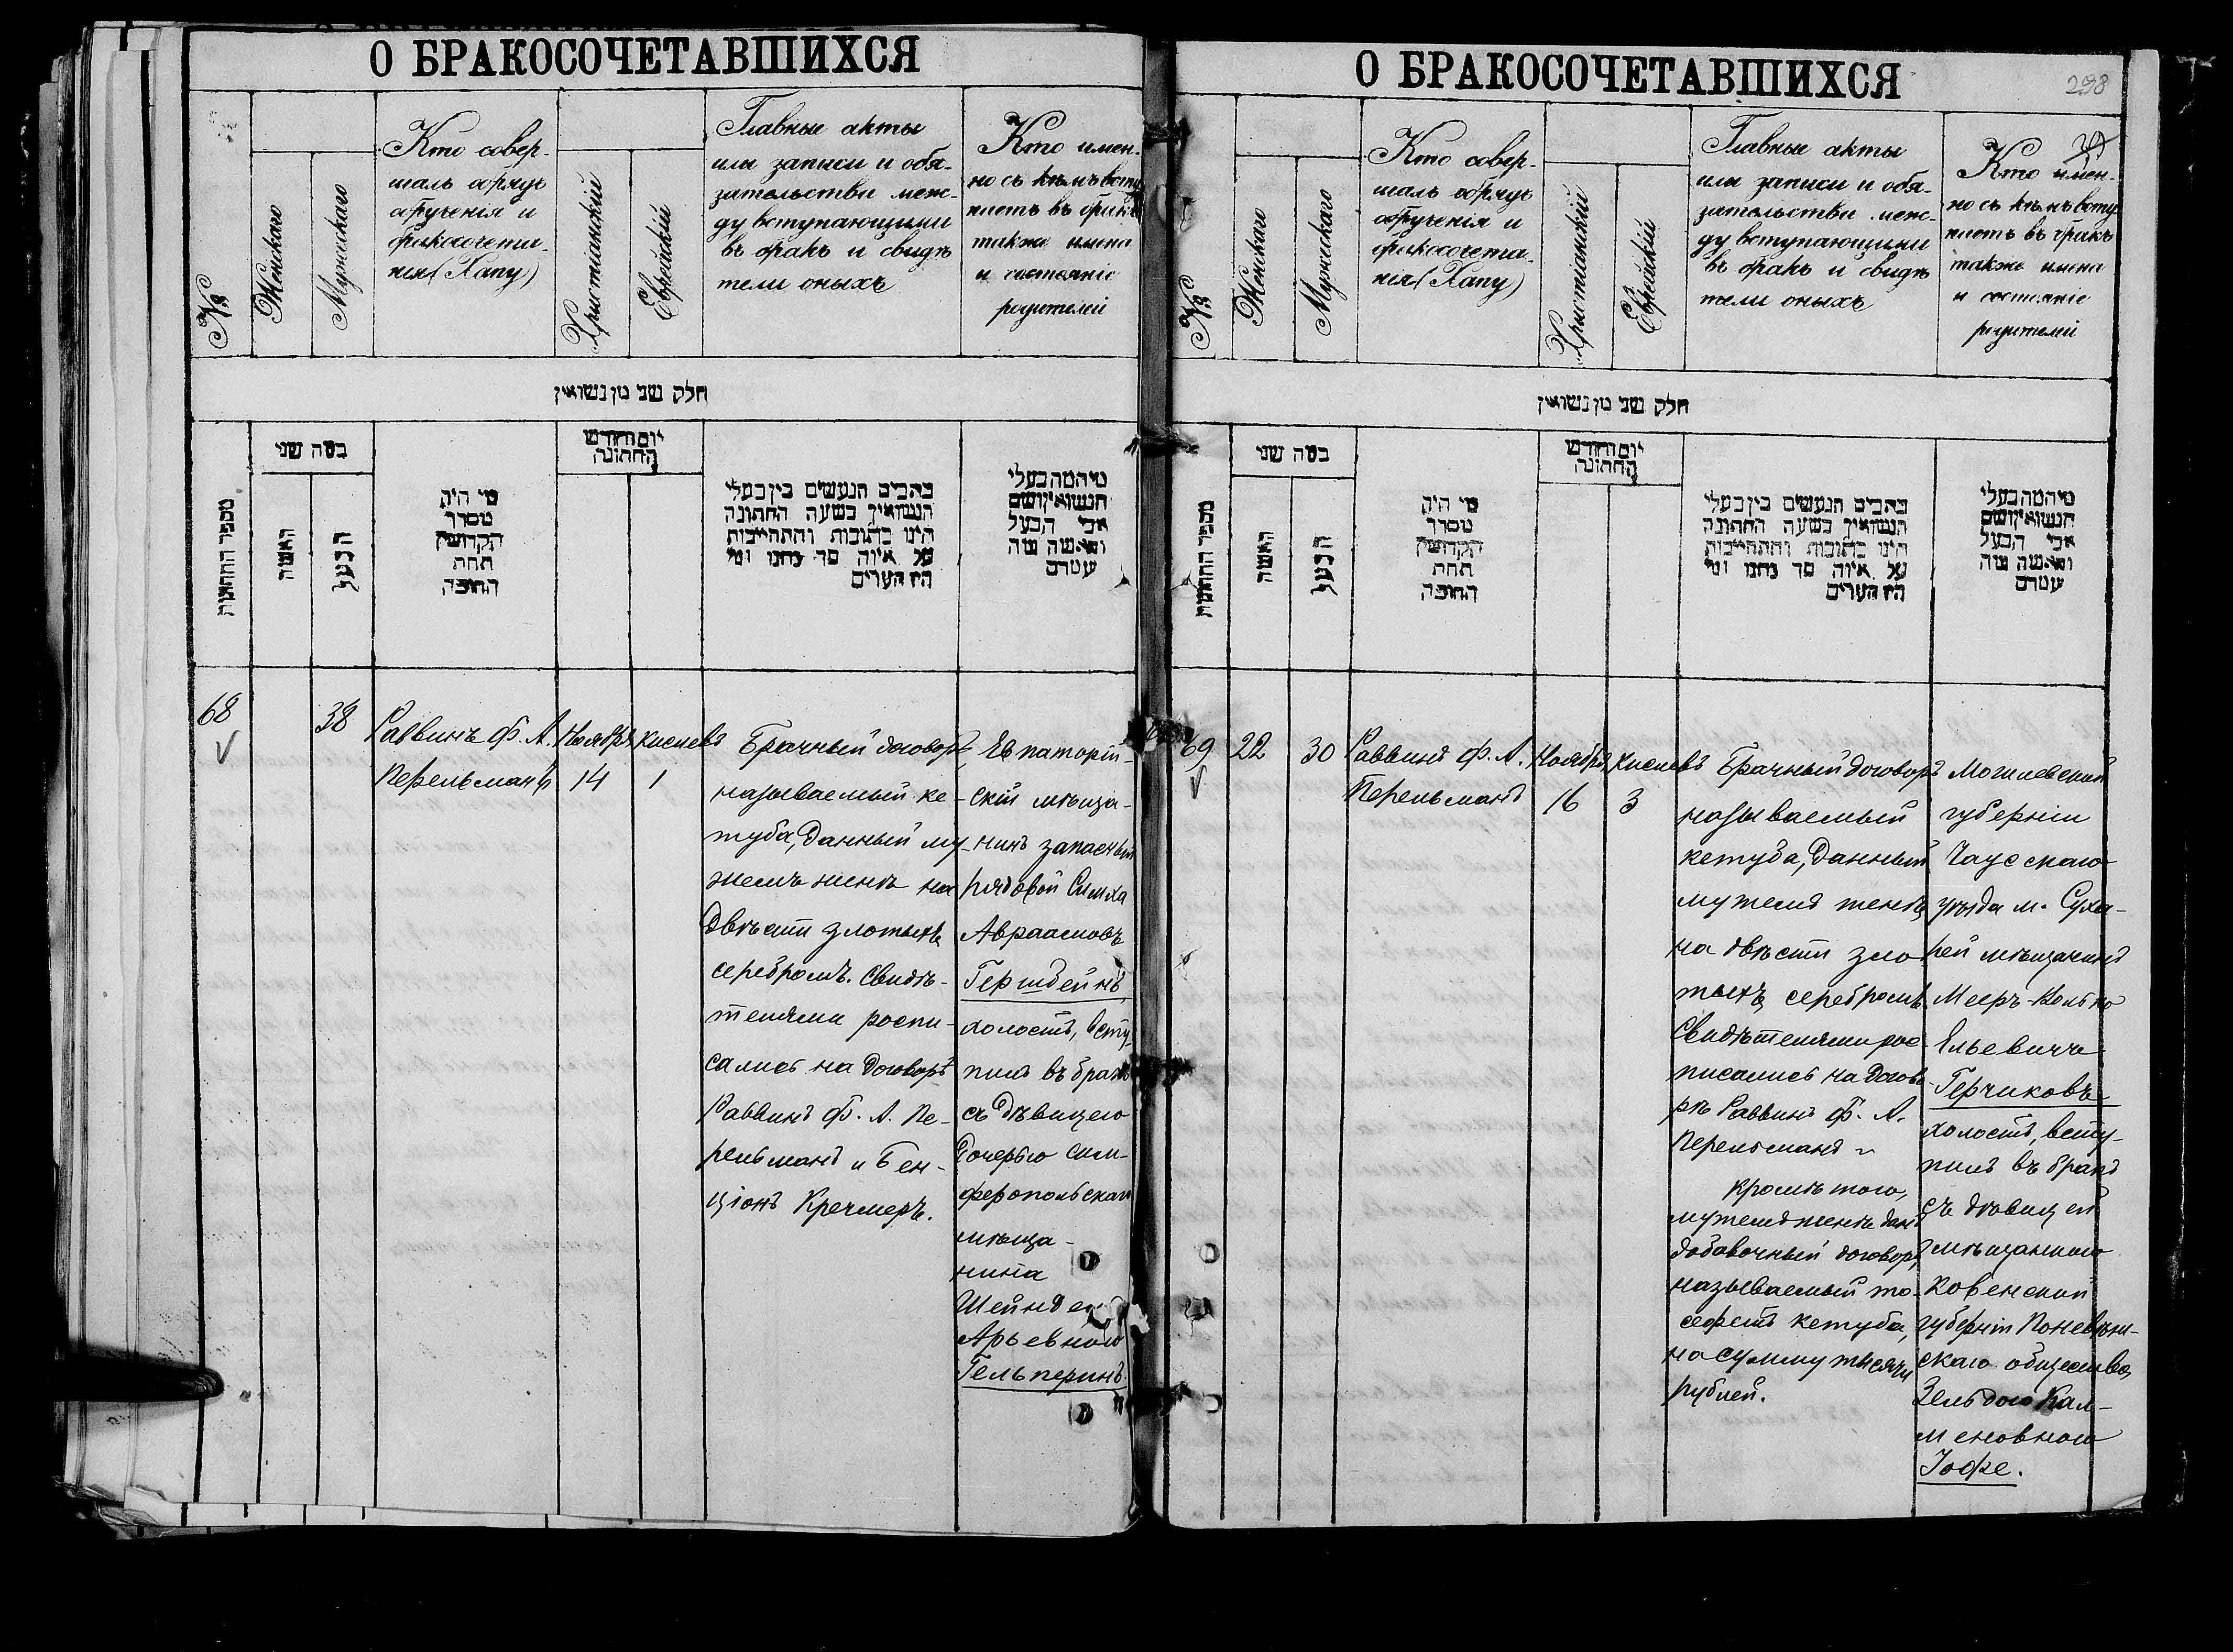 О БРАКОСОЧЕТАВШИХСЯ
№
Женскаго
Мужескаго
Кто совер-
шалъ обрядъ
обрученія и
бракосочета-
нія (Хапу)
Христіанскій
Еврейскій
Главные акты
или записи и обя-
зательства меж-
ду вступающими
въ бракъ и свидѣ
тели оныхъ
Кто имен-
но съ кѣмъ всту
паетъ въ бракъ
также имена
и состояніе
родителей
חלק שני מן נשואין
מספר החתונות
כמה שני
האשה
הבעל
מי היה
מסדר
הקדושין
תחת
החופה
יום וחודש
החתונה
כתבים הנעשים בין בעלי
הנשואין בשעה החתונה
היינו כתובות והתחייבות
על איזה סך נתנו ומי
היו העדים
מי המה בעלי
הנשואין ושם
אבי הבעל
והאשה מה
עטרם
68
38
Раввинъ Ф. А.
Перельманъ
Ноября
14
Кислевъ
1
Брачный договоръ,
называемый ке-
туба, данный му-
жемъ женѣ на
двѣсти злотыхъ
серебромъ. Свидѣ-
телями распи-
сались на договорѣ
Раввинъ Ф. А. Пе-
рельманъ и Бен-
ціонъ Кречмеръ.
Евпаторій-
скій мѣща-
нинъ запасный
рядовой Симха
Авраамовъ
Герштейнъ
холостъ, всту-
пилъ въ бракъ
съ дѣвицею
дочерью Сим-
феропольскаго
мѣща-
нина
Арьевною
Гельперинъ.
О БРАКОСОЧЕТАВШИХСЯ
298
№
Женскаго
Мужескаго
Кто совер-
шалъ обрядъ
обрученія и
бракосочета-
нія (Хапу)
Христіанскій
Еврейскій
Главные акты
или записи и обя-
зательства меж-
ду вступающими
въ бракъ и свидѣ
тели оныхъ
Кто имен-
но съ кѣмъ всту
паетъ въ бракъ
также имена
и состояніе
родителей
חלק שני מן נשואין
מספר החתונות
כמה שני
האשה
הבעל
מי היה
מסדר
הקדושין
תחת
החופה
יום וחודש
החתונה
כתבים הנעשים בין בעלי
הנשואין בשעה החתונה
היינו כתובות והתחייבות
על איזה סך נתנו ומי
היו העדים
מי המה בעלי
הנשואין ושם
אבי הבעל
והאשה מה
עטרם
69
22
30
Раввинъ Ф. А.
Перельманъ
Ноября
16
Кислевъ
3
Брачный договоръ
называемый
кетуба, данный
мужемъ женѣ
на двѣсти зло-
тыхъ серебромъ.
Свидѣтелями рос-
писались на догово-
рѣ Раввинъ Ф. А.
Перельманъ и
Кромѣ того,
мужемъ женѣ данъ
добавочный договоръ,
называемый то-
сефетъ кетуба,
на сумму тысячи
рублей.
Могилевской
губерніи
Чаусскаго
уѣзда м. Суха-
рей мѣщанинъ
Мееръ-
Ельевичъ
Герчиковъ
холостъ, всту-
пилъ въ бракъ
съ дѣвицей
мѣщанкою
Ковенской
губерніи Поневѣж-
скаго общества
Зельдою Кал-
меновною
Іофе.